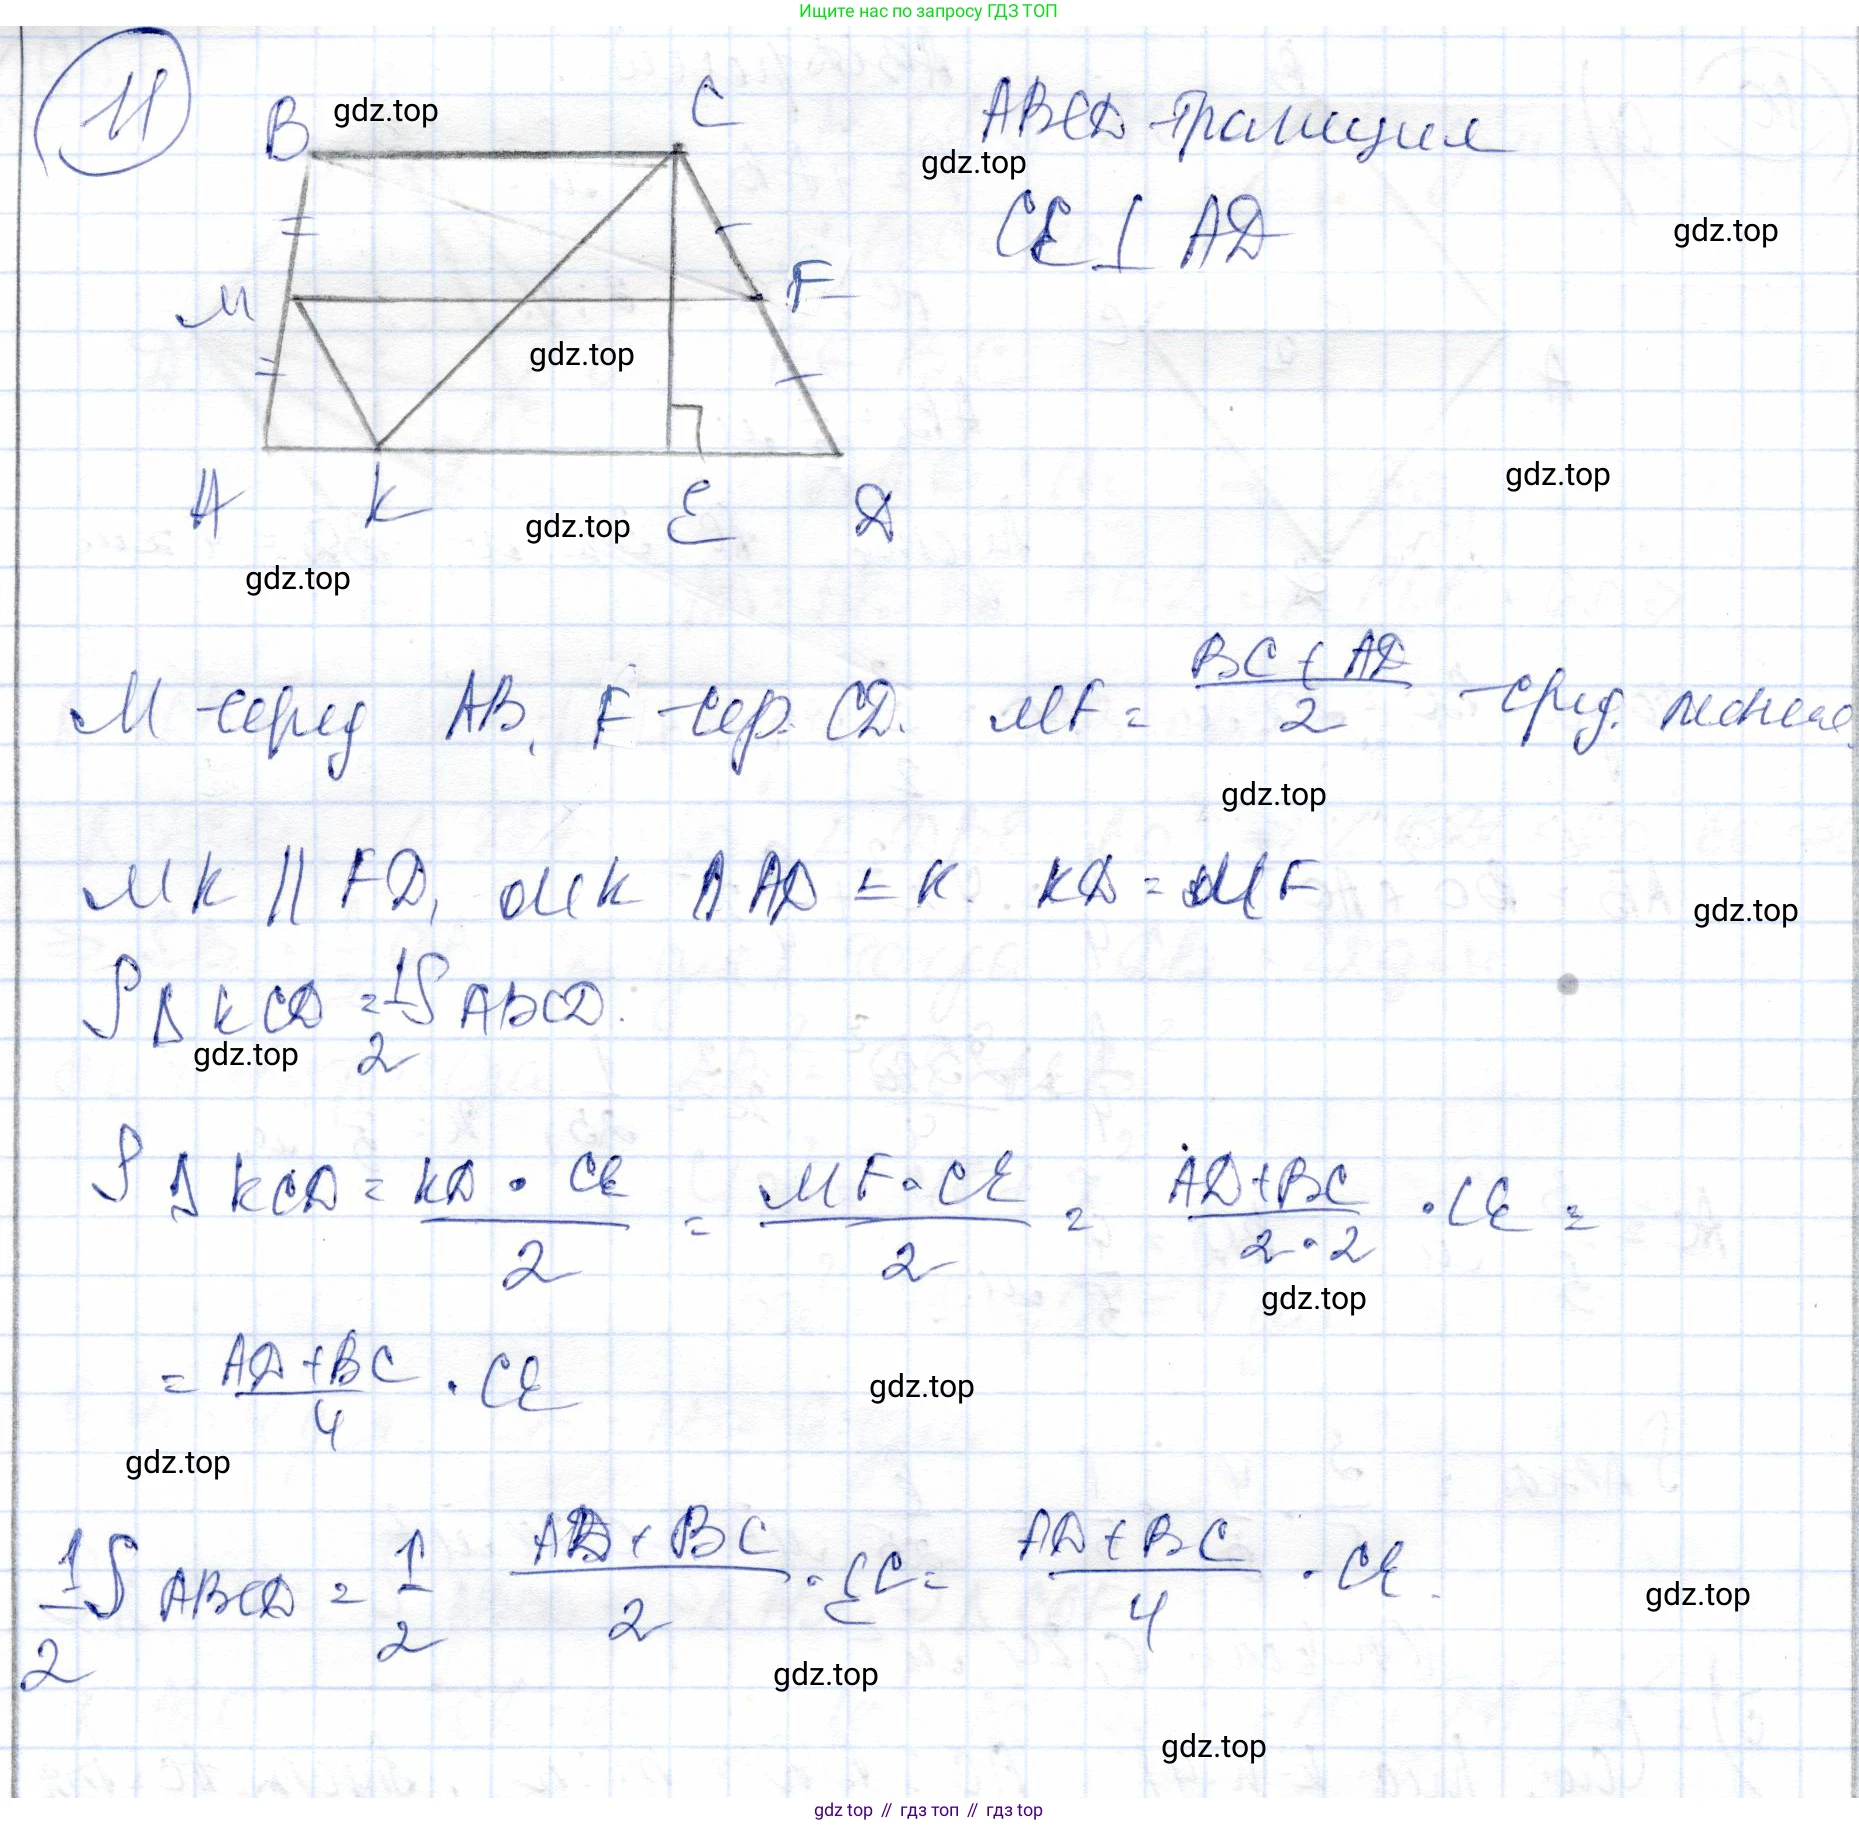 Ищите нас по запросу ГДЗ ТОП
11
B gdz.top C
ABCD - трапеция
gdz.top
CE ⊥ AD
gdz.top
M F
gdz.top
gdz.top
A K E D
gdz.top
gdz.top
M - серед AB, F - сер. CD. MF = (BC + AD)/2 - сред. линия
gdz.top
MK || FD, MK ∩ AD = K. KD = MF
gdz.top
S Δ KCD = 1/2 S ABCD.
gdz.top
S Δ KCD = (KD · CE)/2 = (MF · CE)/2 = (AD + BC)/(2 · 2) · CE =
gdz.top
= (AD + BC)/4 · CE
gdz.top
gdz.top
1/2 S ABCD = 1/2 (AD + BC)/2 · EC = (AD + BC)/4 · CE.
gdz.top
gdz.top
gdz.top
gdz top // гдз топ // гдз top